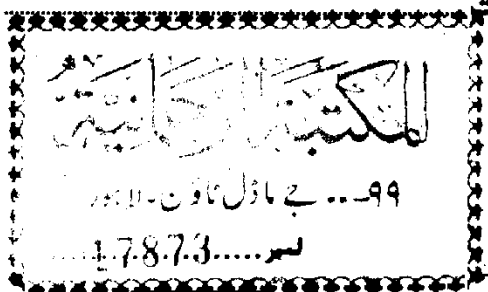 المكتبة الرحمانية
۹۹... جے ماڈل ٹاؤن - لاہور
نمبر.....17873.....